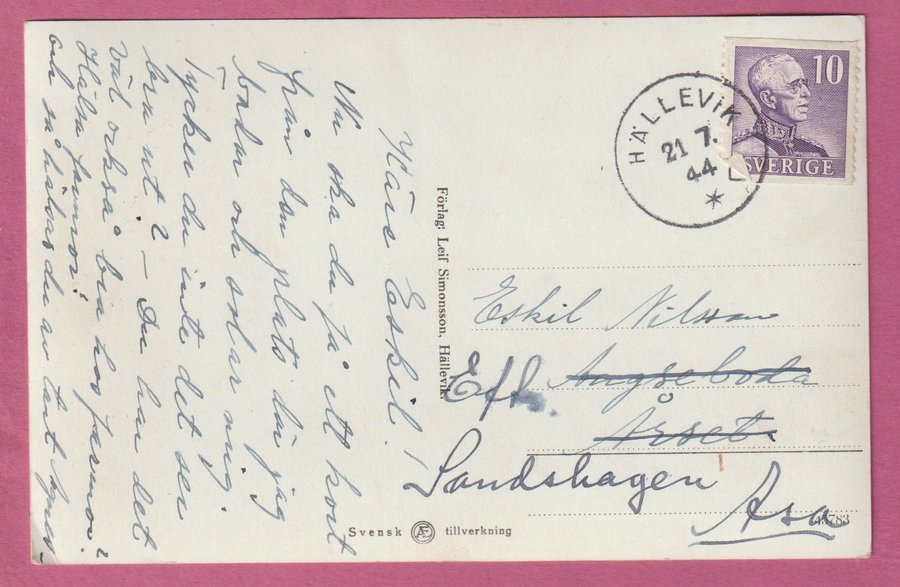 Käre Eskil!
Nu ska du få ett kort
från den plats där jag
badar och solar mig.
Tycker du inte det ser
bra ut? – Du har det
väl också bra hos farmor?
Hälsa farmor!
och så hälsas du av tant Agnes
Förlag: Leif Simonsson, Hällevik.
HÄLLEVIK
21 7.
44
*
10
SVERIGE
Eskil Nilsson
Eft.
Ängseboda
Årset
Sandshagen
Asa
Svensk Æ tillverkning